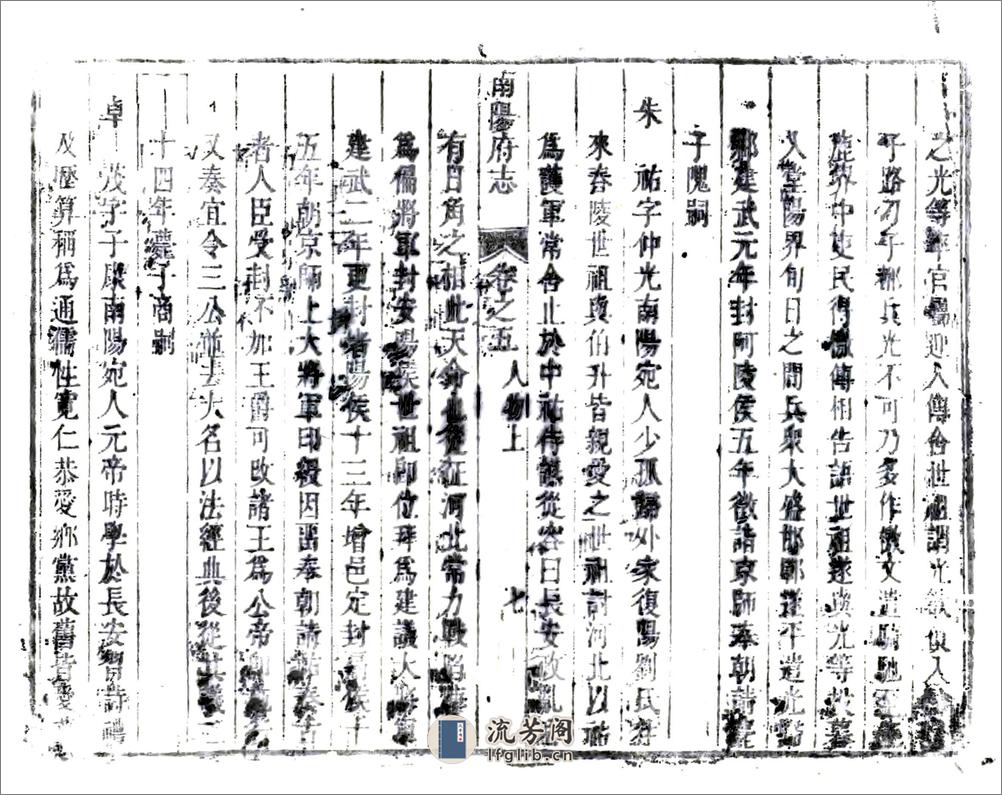 之光等率官屬迎入傳舍世祖謂光
子路刁子都兵光不可乃多作檄文遣騎馳至
鹿界中吏民得檄傳相告語世祖遂與光等投暮
入堂陽界旬日之間兵眾大盛邯鄲遂平遣光歸
郡建武元年封阿陵侯五年徵詣京師奉朝請
子隗嗣
朱祐字仲光南陽宛人少孤歸外家復陽劉氏往
來舂陵世祖與伯升皆親愛之世祖討河北以祐
為護軍常舍止於中祐侍讌從容曰長安政亂
南陽府志 卷之五 人物上 七
有日角之相此天命也從征河北常力戰陷
為偏將軍封安陽侯世祖即位拜為建議大
建武二年更封堵陽侯十三年增邑定封鬲侯
五年朝京師上大將軍印綬因留奉朝請祐奏古
者人臣受封不加王爵可改諸王為公帝即
又奏宜令三公並去大名以法經典後從其議二
十四年薨子商嗣
卓茂字子康南陽宛人元帝時學於長安習詩禮
及歷算稱為通儒性寬仁恭愛鄉黨故舊皆愛
流芳阁
lfglib.cn